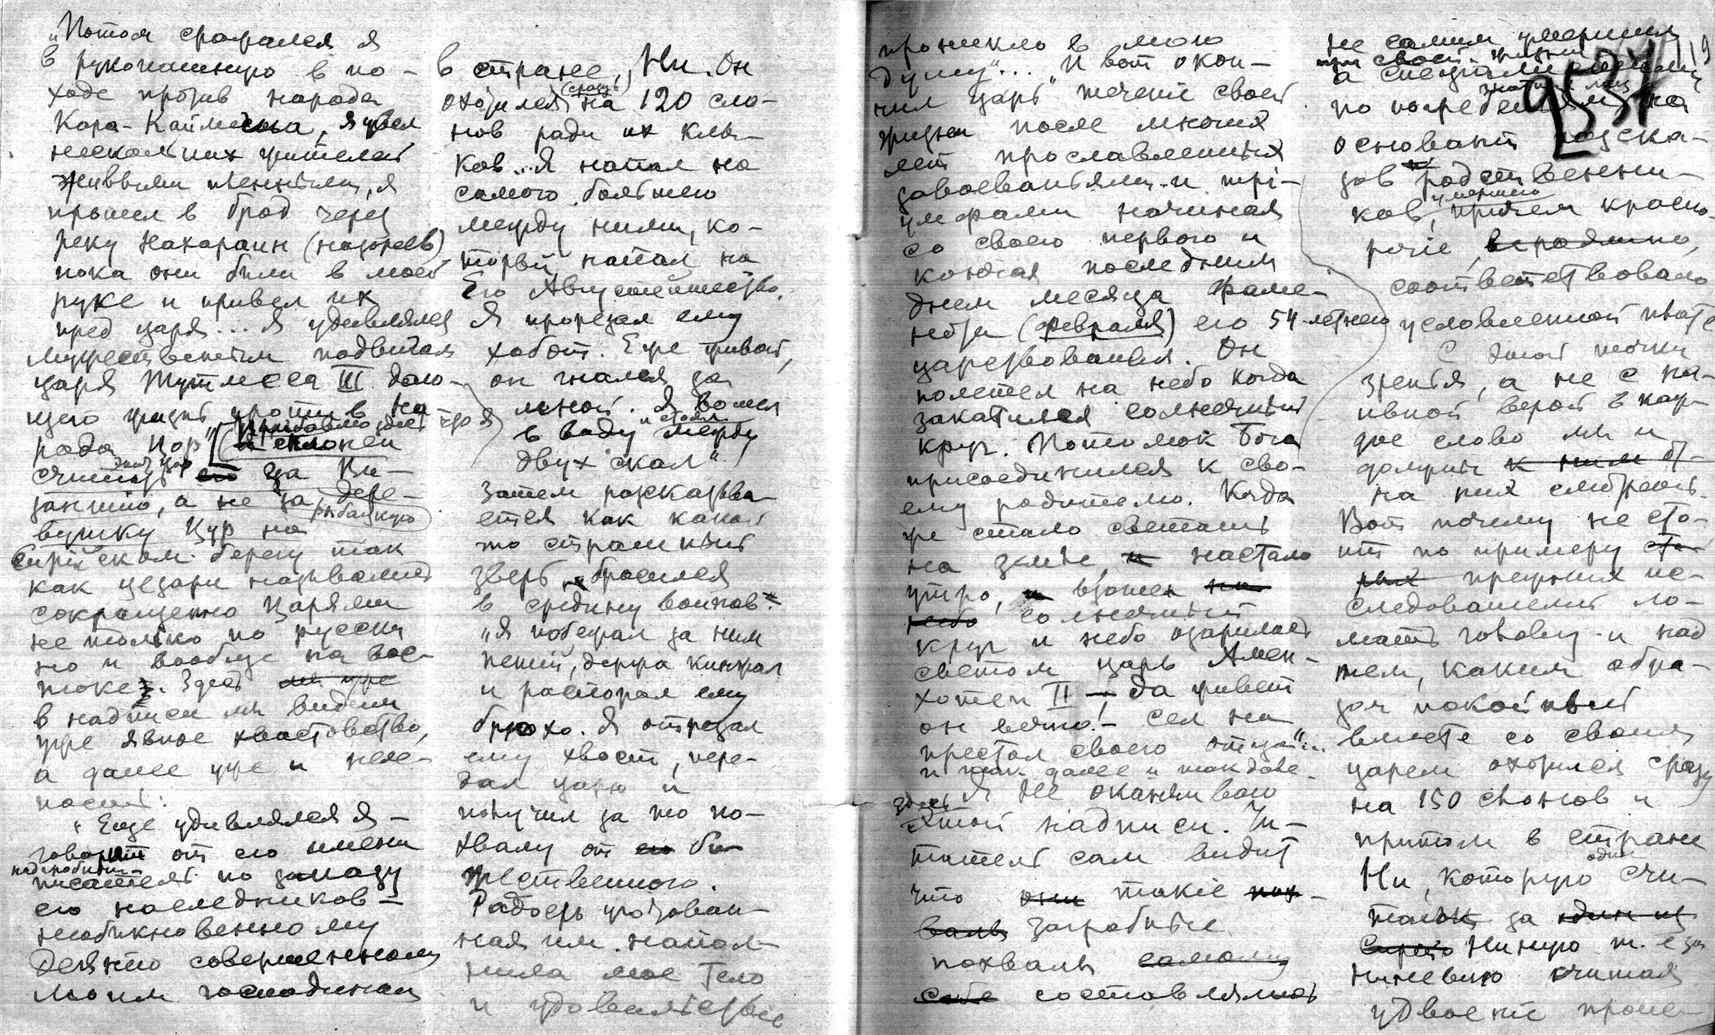 "Потом сражался я
в рукопашную в по-
ходе против народа
Кара-Каймеша, я увел
нескольких жителей
живыми пленными, я
прошел в брод через
реку Нахараин (назореев)
пока они были в моей
руке и привел их
пред царя... Я удивлялся
мужественным подвигам
царя Тутмеса III дало-
щего против на
рода Цор" Прибавлю здесь что я
а склонен
считать этот Цор за Ви-
зантию, а не за дере-
рыбацкую
вушку Цур на
Сирийском берегу так
как цезари назывались
сокращенно Царями
не только по русски
но и вообще на вос-
токе. Здесь
в надписи мы видим
уже явное хвастовство,
а далее уже и неле-
посит:
"Еще удивлялся я -
говорит от его имени
надгробный
писатель по заказу
его наследников -
необыкновенному
деянию совершенному
моим господином
в стране Ни. Он
охотился (сразу) на 120 сло-
нов ради их клы-
ков... Я напал на
самого большего
между ними, ко-
торый напал на
Его Августейшество.
Я прорезал ему
хобот. Еще живой,
он гнался за
мной. Я вошел
в воду и стоял между
двух скал".
Затем рассказыва-
ется как какой
то страшный
зверь бросился
в средину воинов:
"Я побежал за ним
пеший, держа кинжал
и распорол ему
брюхо. Я отрезал
ему хвост, пере-
дал царю и
получил за то по-
хвалу от его бо-
жественного.
Радость
ная им напол-
нила мое тело
и удовольствие
проникло в мою
душу"... "И вот окон-
чил царь течение своей
жизни после многих
лет прославленных
завоеваньями и три-
умфами начиная
со своего первого и
кончая последним
днем месяца Фаме-
нота (февраля) его 54-летнего
царствования. Он
полетел на небо когда
закатился солнечный
круг. Потомок Бога
присоединился к сво-
ему родителю. Когда
же стало светать
на земле, и настало
утро, и взошел на
небо солнечный
круг и небо озарилось
светом царь Амен-
хотеп II - да живет
он вечно! - сел на
престол своего отца"...
и так далее и так дале-
Я не оканчиваю
здесь
этой надписи. Чи-
татель сам видит
что они такие пох-
валы загробные
похвалы самому
себе составлялись
не самим умершим
при своей жизни
а специалистами
по погребениям на
основании расска-
зов родственни-
ков умершего, причем красно-
речие,
соответствовало
условленной плате
С этой точки
зрения, а не с на-
ивной верой в каж-
дое слово мы и
должны к ним
на них смотреть.
Вот почему не сто-
ит по примеру
прежних ис-
следователей ло-
мать голову и над
тем, каким обра-
зом покойный
вместе со своим
царем охотился сразу
на 150 слонов и
притом в стране
Ни, которую одни счи-
тают за один из
Нинию т.е. за
Ниневию считая
удвоение проис-